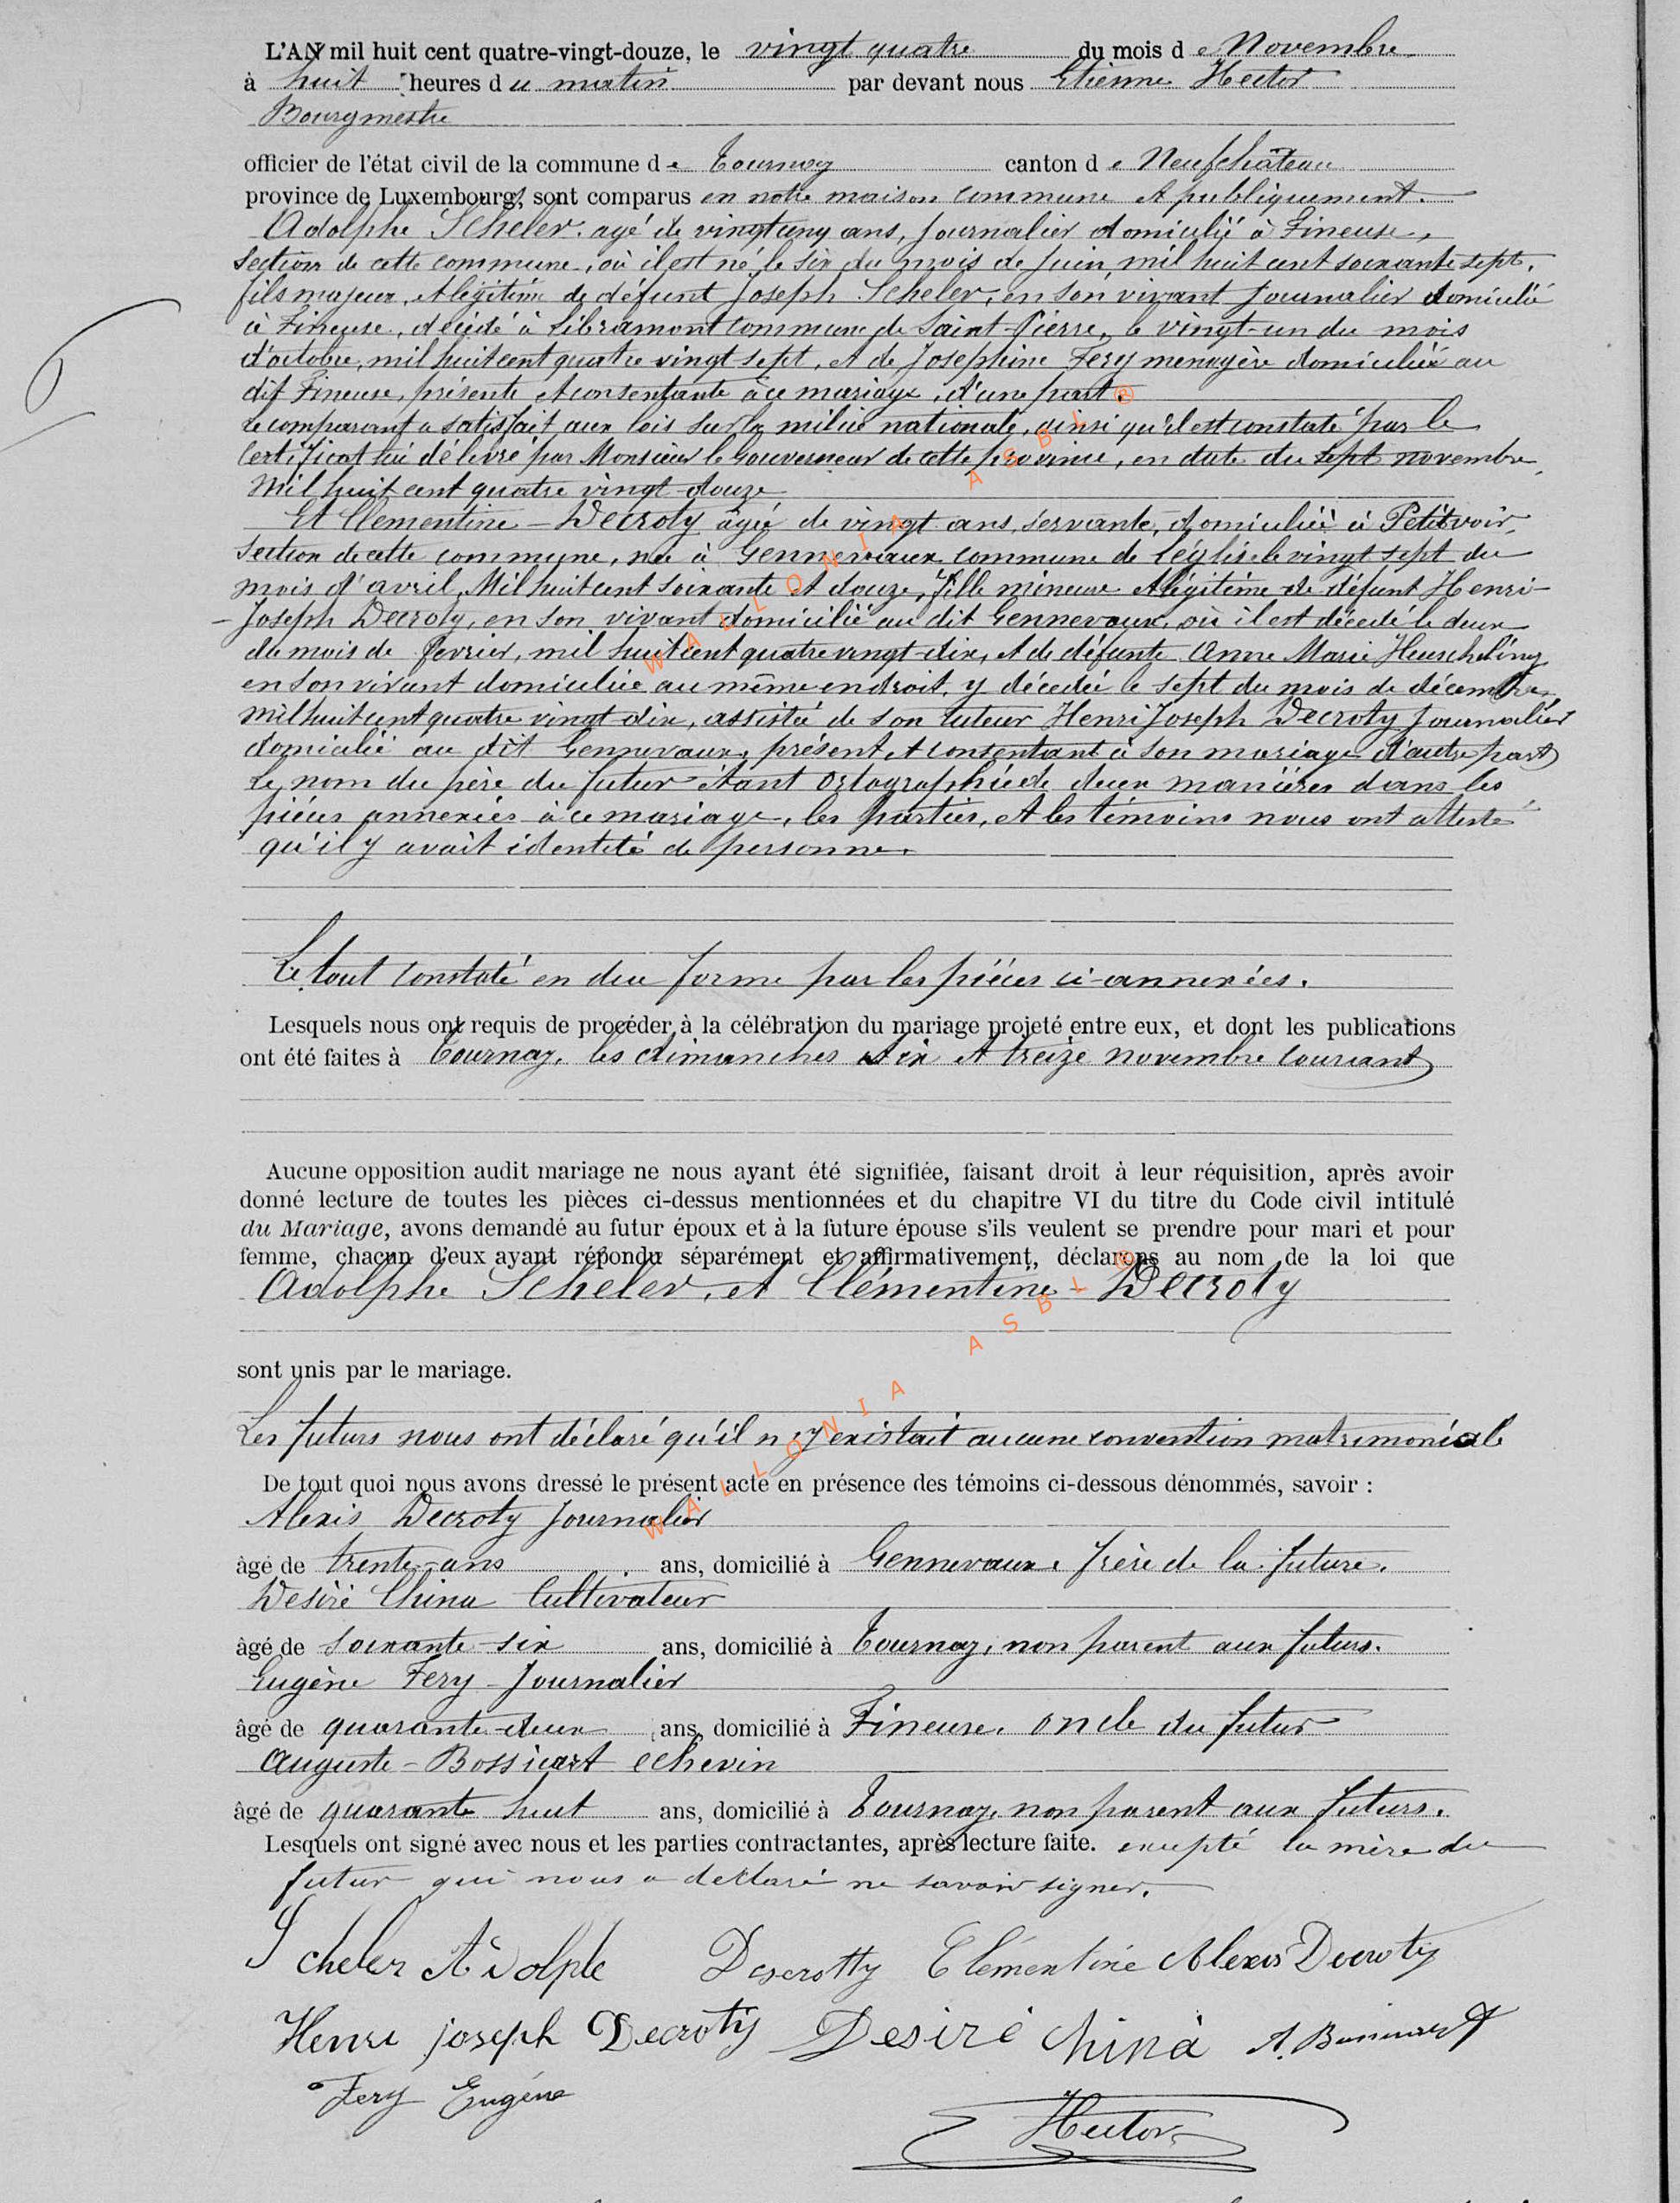 L'AN mil huit cent quatre-vingt-douze, le vingt quatre du mois de Novembre
à huit heures du matin par devant nous Etienne Hector
Bourgmestre
officier de l'état civil de la commune de Tournay canton de Neufchâteau
province de Luxembourg, sont comparus en notre maison commune et publiquement.
Adolphe Scheler, agé de vingt cinq ans, journalier domicilié à Fineuse,
section de cette commune, où il est né le six du mois de juin mil huit cent soixante sept,
fils majeur, et légitime de défunt Joseph Scheler, en son vivant journalier domicilié
à Fineuse, décédé à Libramont commune de Saint-Pierre, le vingt-un du mois
d'octobre, mil huit cent quatre vingt sept, et de Josephine Fery menagère domiciliée au
dit Fineuse, présente et consentante à ce mariage, d'une part.
Le comparant a satisfait aux lois sur la milice nationale, ainsi qu'il est constaté par le
certificat lui délivré par Monsieur le Gouverneur de cette province, en date du sept novembre
mil huit cent quatre vingt-douze
Et Clementine-Decroty âgée de vingt ans, servante, domiciliée à Petitvoir,
section de cette commune, née à Gennevaux commune de Léglise le vingt sept du
mois d'avril, Mil huit cent soixante et douze, fille mineure et légitime de défunt Henri-
-Joseph Decroty, en son vivant domicilié au dit Gennevaux, où il est décédé le deux
du mois de fevrier, mil huit cent quatre vingt-dix, et de défunte Anne Marie Heuschling
en son vivant domiciliée au même endroit, y décedée le sept du mois de décembre
mil huit cent quatre vingt dix, assistée de son tuteur Henri Joseph Decroty journalier
domicilié au dit Gennevaux, présent et consentant à son mariage d'autre part
Le nom du père du futur étant ortographié de deux manières dans les
pièces annexées à ce mariage, les parties, et les témoins nous ont attesté
qu'il y avait identité de personne.
Le tout constaté en due forme par les pièces ci-annexées.
Lesquels nous ont requis de procéder à la célébration du mariage projeté entre eux, et dont les publications
ont été faites à Tournay, les dimanches six et treize novembre courant
Aucune opposition audit mariage ne nous ayant été signifiée, faisant droit à leur réquisition, après avoir
donné lecture de toutes les pièces ci-dessus mentionnées et du chapitre VI du titre du Code civil intitulé
du Mariage, avons demandé au futur époux et à la future épouse s'ils veulent se prendre pour mari et pour
femme, chacun d'eux ayant répondu séparément et affirmativement, déclarons au nom de la loi que
Adolphe Scheler, et Clémentine-Decroty
sont unis par le mariage.
Les futurs nous ont déclaré qu'il n'y existait aucune convention matrimoniale
De tout quoi nous avons dressé le présent acte en présence des témoins ci-dessous dénommés, savoir :
Alexis Decroty journalier
âgé de trente-ans ans, domicilié à Gennevaux, frère de la future.
Désiré China Cultivateur
âgé de soixante-six ans, domicilié à Tournay, non parent aux futurs.
Eugène Fery-Journalier
âgé de quarante-deux ans, domicilié à Fineuse, oncle du futur
Auguste-Bossicart echevin
âgé de quarante huit ans, domicilié à Tournay, non parent aux futurs.
Lesquels ont signé avec nous et les parties contractantes, après lecture faite. excepté la mère du
futur qui nous a declaré ne savoir signer.
Scheler Adolphe Descrotty Clémentine Alexis Decroty
Henri joseph Decroty Desiré China
Fery Eugène
Hector
WALLONIA ASBL ®
WALLONIA ASBL ®